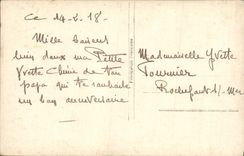 Ce 14-6-18-
Mille baisers
bien doux ma Petite
Yvette Chérie de ton
papa qui te souhaite
un bon anniversaire
Mademoiselle Yvette
Fournier
Rochefort s/-Mer